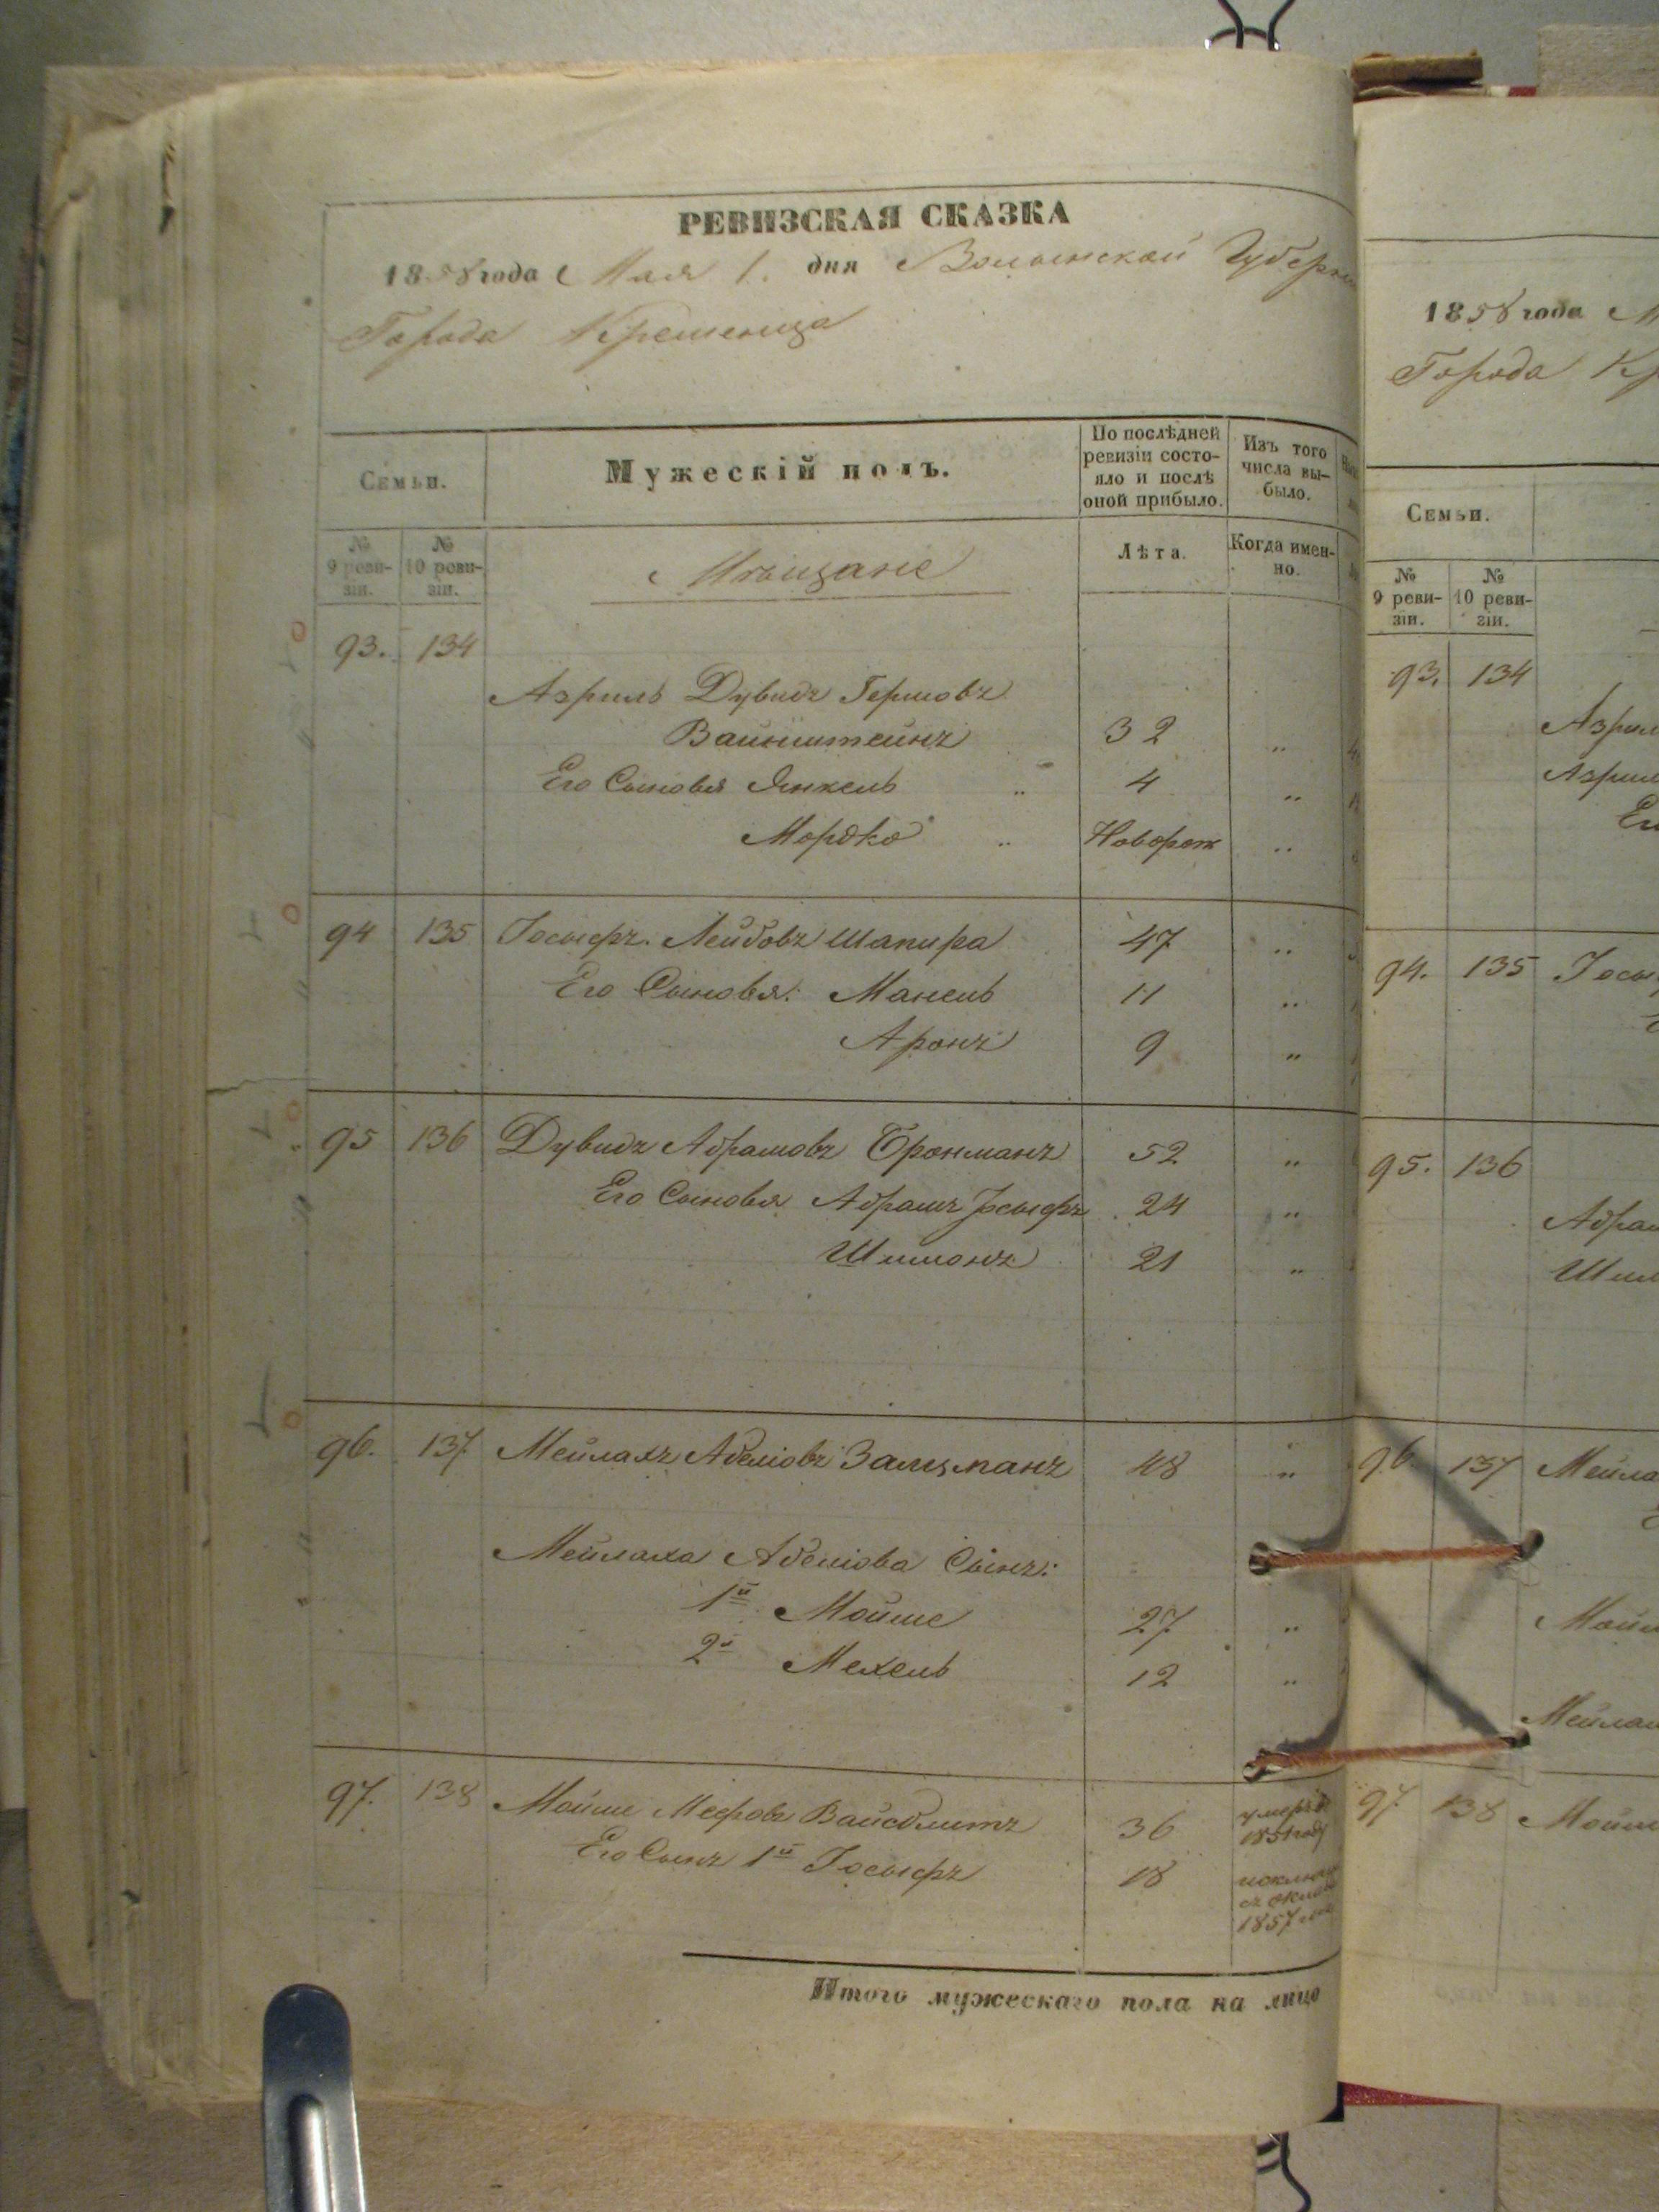 РЕВИЗСКАЯ СКАЗКА
1858 года Мая 1. дня Волынской Губерн
Города Кременца
Семьи.
Мужескій полъ.
По послѣдней ревизіи состо-
яло и послѣ
оной прибыло.
Изъ того
числа вы-
было.
№
9 реви-
зіи.
№
10 реви-
зіи.
Мѣщане
Лѣта.
Когда имен-
но.
93. 134
Азриль Дувидъ Гершовъ
Вайнштейнъ 32 „
Его Сыновья Янкель „ 4 „
Мордко „ Новорож „
94 135 Іосыфъ Лейбовъ Шапира 47 „
Его Сыновья: Манель 11 „
Аронъ 9 „
95 136 Дувидъ Абрамовъ Бронманъ 52 „
Его Сыновья Абрамъ Іосыфъ 24 „
Шимонъ 21 „
96. 137 Мейлахъ Абеліовъ Залцманъ 48 „
Мейлаха Абеліова Сынъ:
1й Мойше 27 „
2й Мехель 12 „
97. 138 Мойше Меeровъ Вайсблитъ 36 умеръ в
1851 году
Его Сынъ 1й Іосыфъ 18 исключ
съ оклад
1857
Итого мужескаго пола на лицо
1858 года М
Города Кр
Семьи.
№
9 реви-
зіи.
№
10 реви-
зіи.
93. 134
Азрил
Азрил
Ег
94. 135 Іосы
95. 136
Абрам
Шим
96. 137 Мейла
Мойш
Мейлах
97 138 Мойше